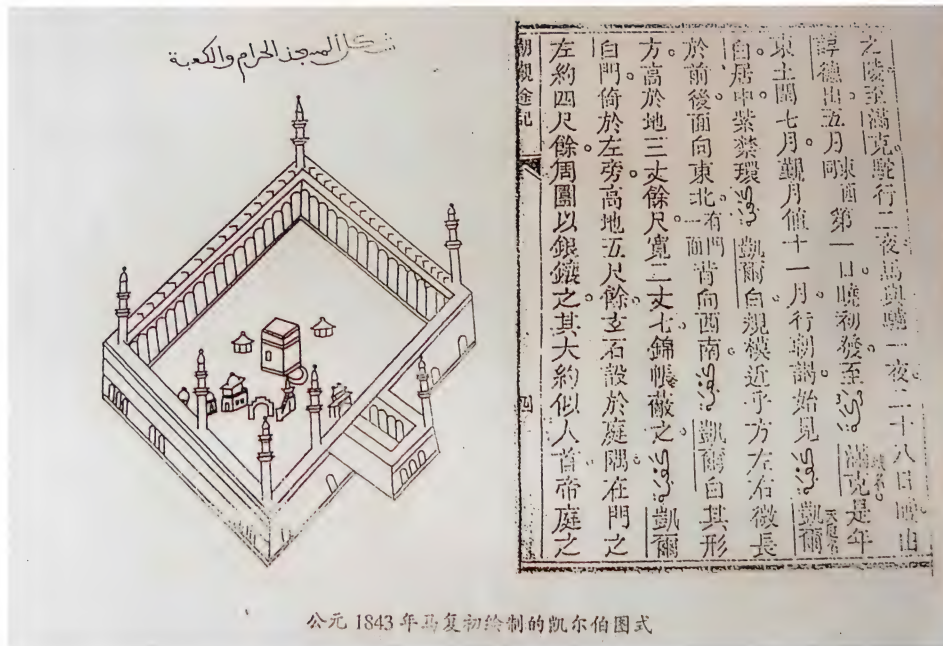 شكل المسجد الحرام والكعبة
之陵至滿克。駝行二夜馬與驢一夜。二十八日曉由
諄德出。五月東西同第一日。曉初發。至滿克是年
東土閏七月。覲月值十一月。行朝謁。始見凱爾
白。居中紫禁環。كعبة 凱爾白規模近乎方左右微長
於前後。面向東北。有門一面背向西南。كعبة 凱爾白其形
方。高於地三丈餘尺。寬二丈七。錦帳蔽之。كعبة 凱爾
白門。倚於左旁。高地五尺餘。玄石設於庭隅。在門之
左約四尺餘。周圍以銀鑲之。其大約似人首。帝庭之
朝覲途記
四
公元 1843 年马复初绘制的凯尔伯图式